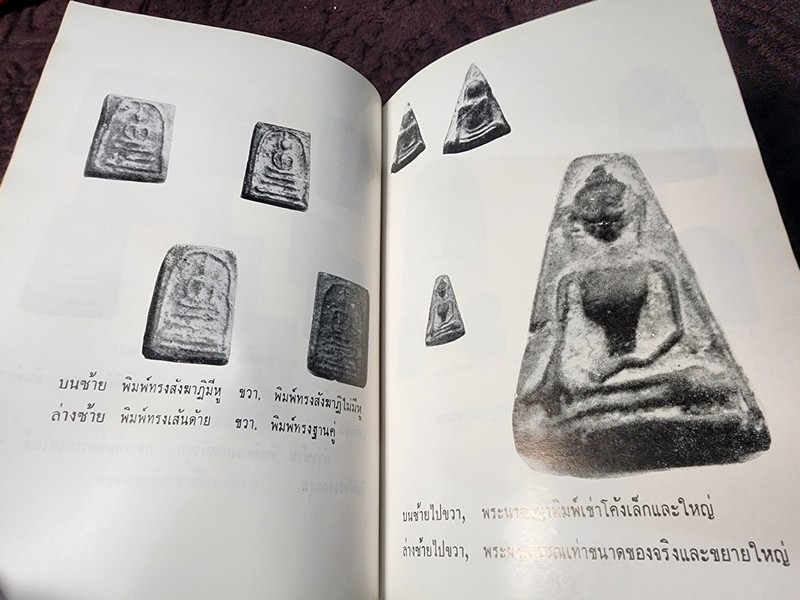 บนซ้าย พิมพ์ทรงสังฆาฏิมีหู ขวา, พิมพ์ทรงสังฆาฏิไม่มีหู
ล่างซ้าย พิมพ์ทรงเส้นด้าย ขวา, พิมพ์ทรงฐานคู่
บนซ้ายไปขวา, พิมพ์เข่าโค้งเล็กและใหญ่
ล่างซ้ายไปขวา, เท่าขนาดของจริงและขยายใหญ่